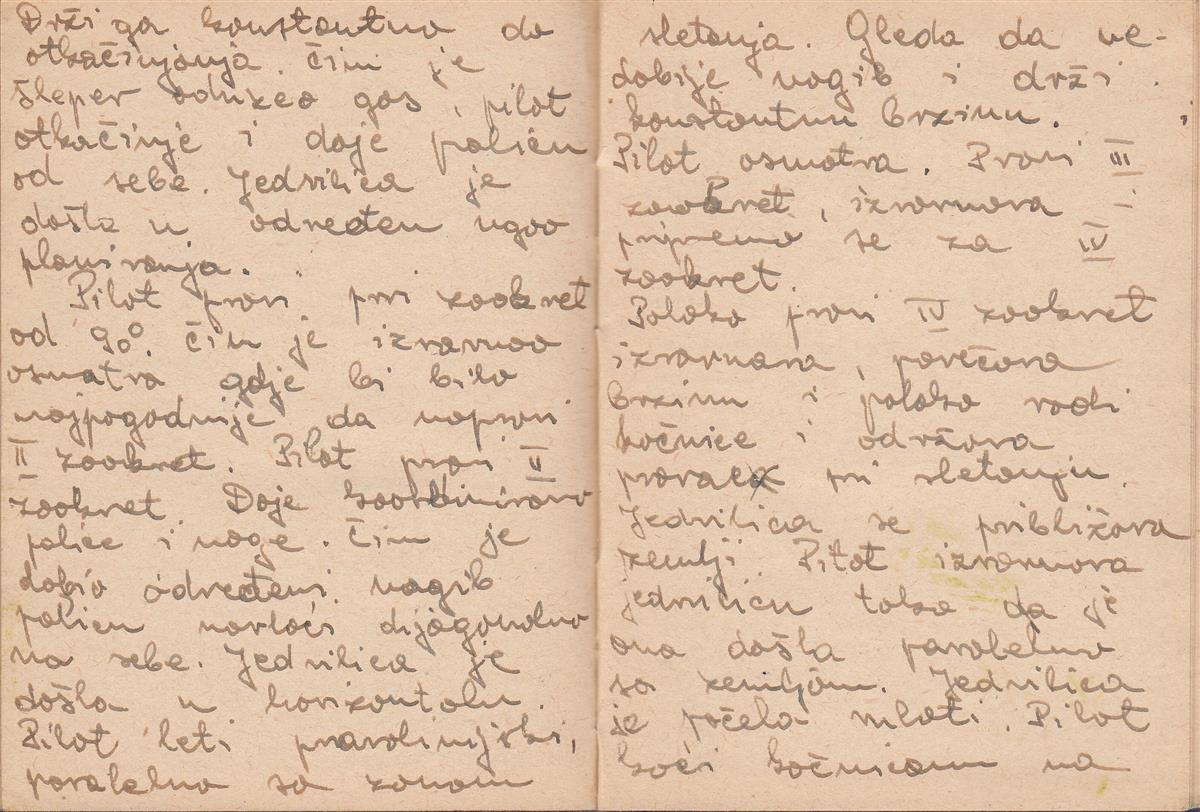 Drži ga konstantno do
otkačinjanja. Čim je
šleper oduzeo gas, pilot
otkačinje i daje palicu
od sebe. Jedrilica je
došla u određen ugao
planiranja.
Pilot pravi prvi zaokret
od 90°. Čim je izravnao
osmatra gdje bi bilo
najpogodnije da napravi
II zaokret. Pilot pravi II
zaokret. Daje kombinirano
palice i noge. Čim je
dobio određeni nagib
palicu navlači dijagonalno
na sebe. Jedrilica je
došla u horizontalu.
Pilot leti pravolinijski,
paralelno sa zonom
sletanja. Gleda da ne-
dobije nagib i drži
konstantnu brzinu.
Pilot osmatra. Pravi III
zaokret, izravnava i
pripremo se za IV
zaokret.
Polako pravi IV zaokret
izravnava, povećava
brzinu i polako vadi
kočnice i održava
pravac pri sletanju.
Jedrilica se približava
zemlji. Pilot izravnava
jedrilicu tako da je
ona došla paralelno
sa zemljom. Jedrilica
je počela vlati. Pilot
koči kočnicom na